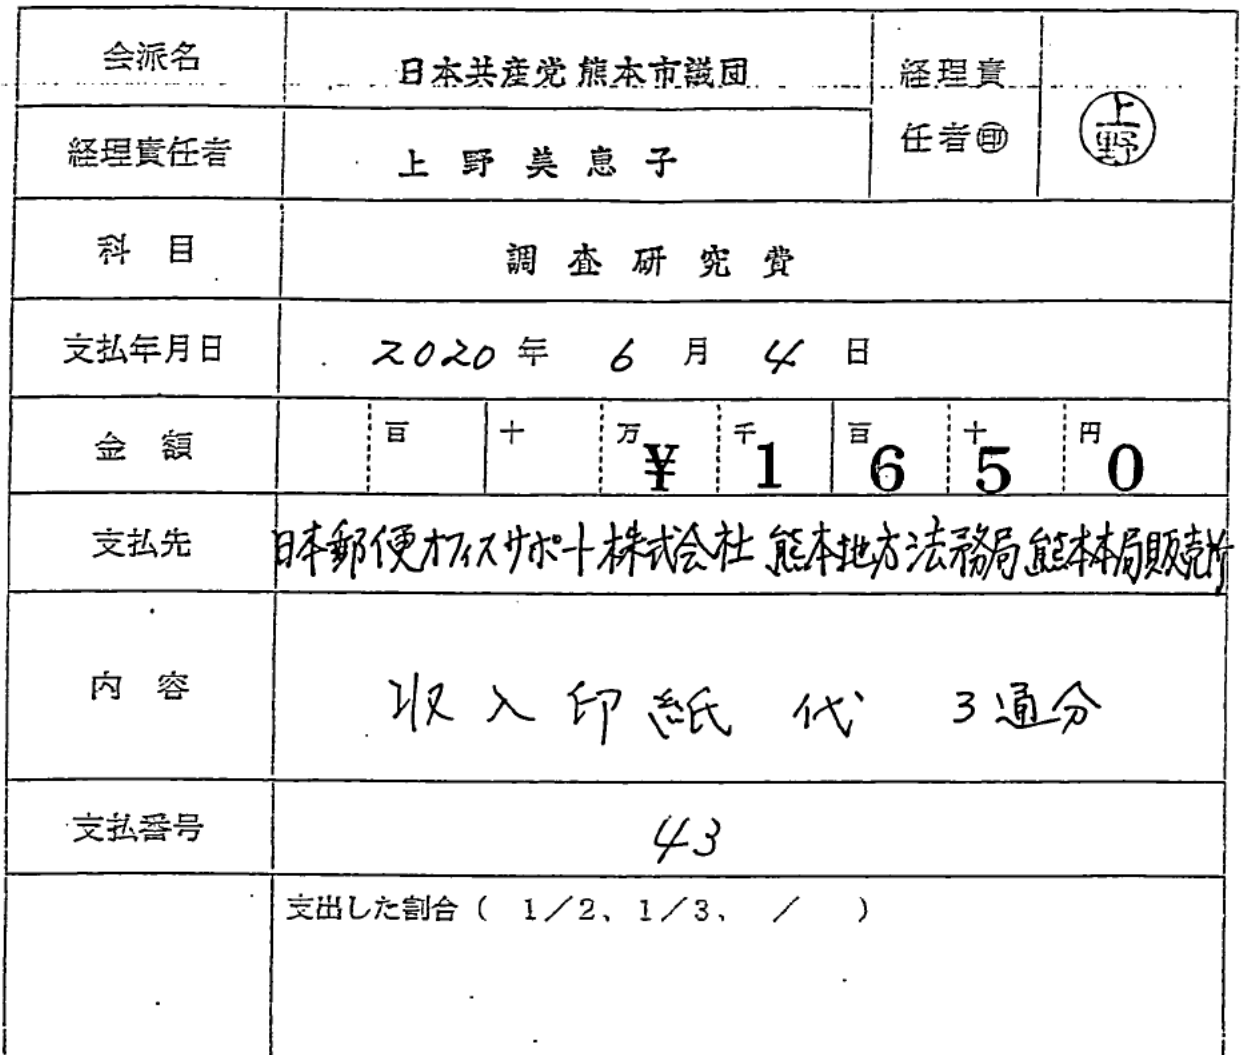 会派名 日本共産党 熊本市議団 経理責任者㊞ 上野
経理責任者 上野美恵子
科目 調査研究費
支払年月日 2020年 6月 4日
金額 百 十 万 ¥ 千 1 百 6 十 5 円 0
支払先 日本郵便オフィスサポート株式会社 熊本地方法務局 熊本本局販売所
内容 収入印紙 代 3通分
支払番号 43
支出した割合( 1/2、1/3、 / )